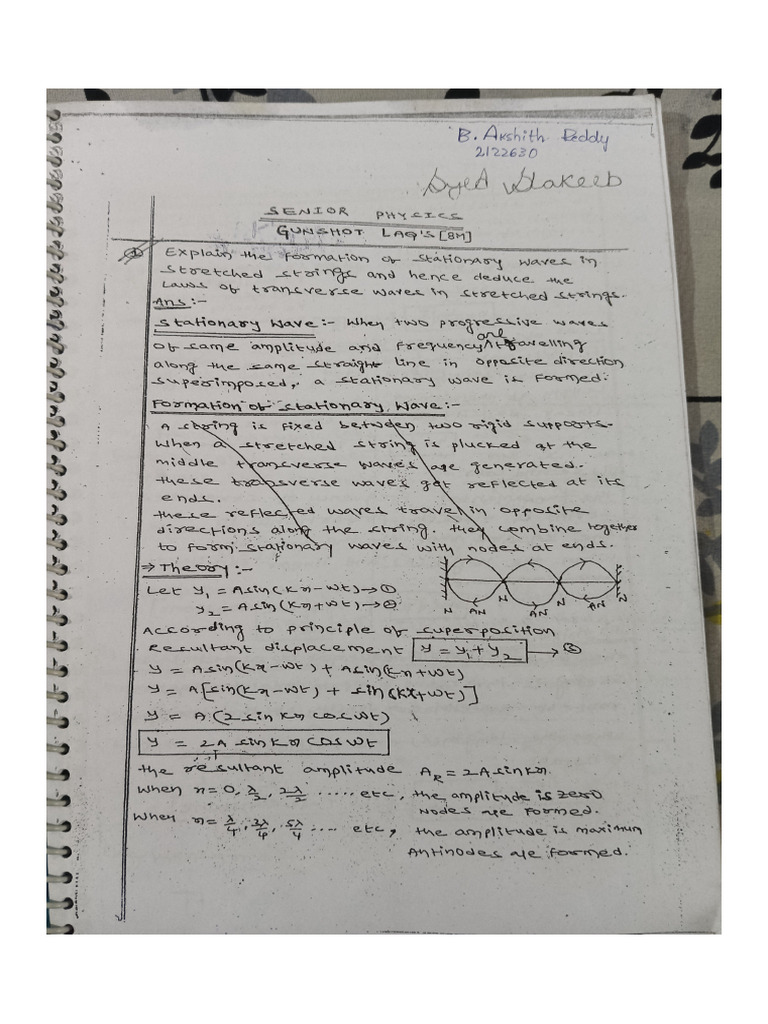 B. Akshith Reddy
2122630
Syed Shakeeb
SENIOR PHYSICS
GUNSHOT LAQ'S [8M]
① Explain the formation of stationary waves in
stretched strings and hence deduce the
Laws of transverse waves in stretched strings.
Ans:-
Stationary Wave:- When two progressive waves
of same amplitude and frequency are travelling
along the same straight line in opposite direction
superimposed, a stationary wave is formed.
Formation of Stationary Wave:-
A string is fixed between two rigid supports.
When a stretched string is plucked at the
middle transverse waves are generated.
these transverse waves get reflected at its
ends.
these reflected waves travel in opposite
directions along the string. they combine together
to form stationary waves with nodes at ends.
⇒ Theory:-
Let y₁ = A sin(Kx-wt) → ①
y₂ = A sin(Kx+wt) → ②
N AN N AN N AN N
According to principle of superposition
Resultant displacement y = y₁ + y₂ → ③
y = A sin(Kx-wt) + A sin(Kx+wt)
y = A[sin(Kx-wt) + sin(Kx+wt)]
y = A (2 sin Kx cos wt)
y = 2A sin Kx cos wt
the resultant amplitude A_R = 2A sin Kx.
When x = 0, λ/2, 2λ/2 ..... etc, the amplitude is zero
Nodes are formed.
When x = λ/4, 3λ/4, 5λ/4 .... etc, the amplitude is maximum
Antinodes are formed.